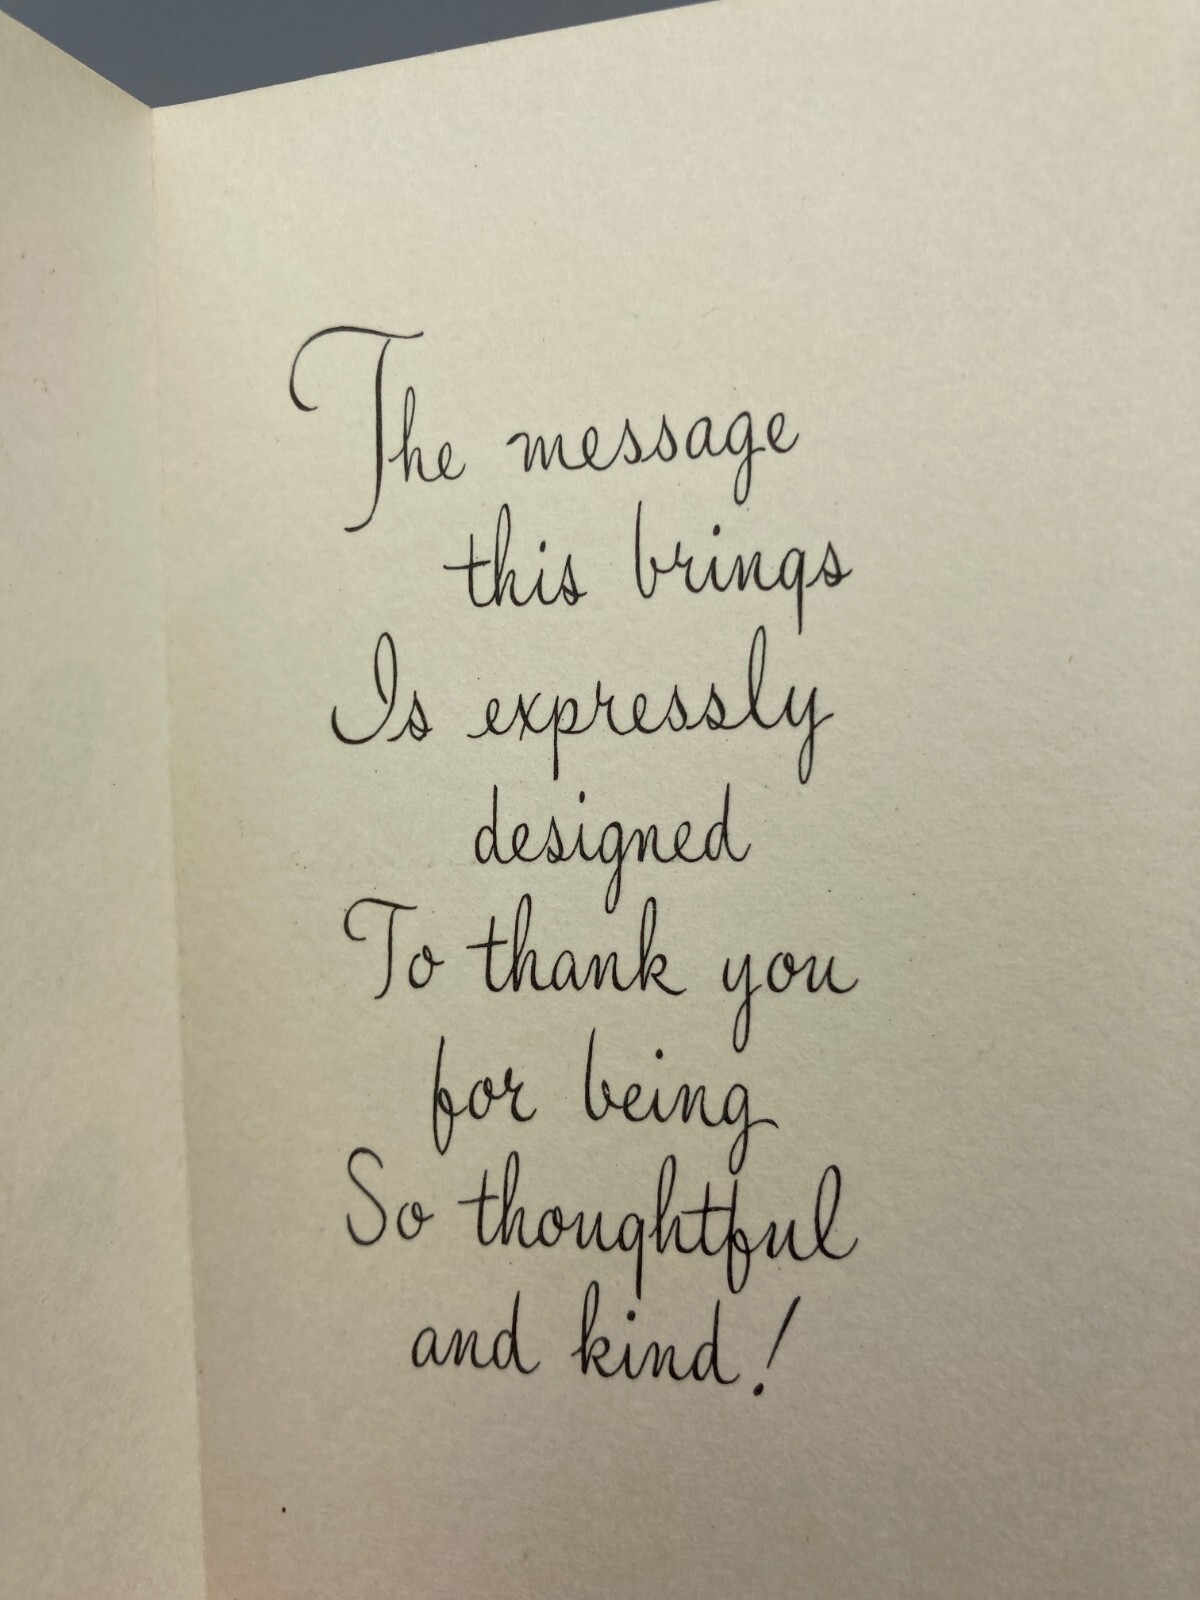 The message
this brings
Is expressly
designed
To thank you
for being
So thoughtful
and kind!